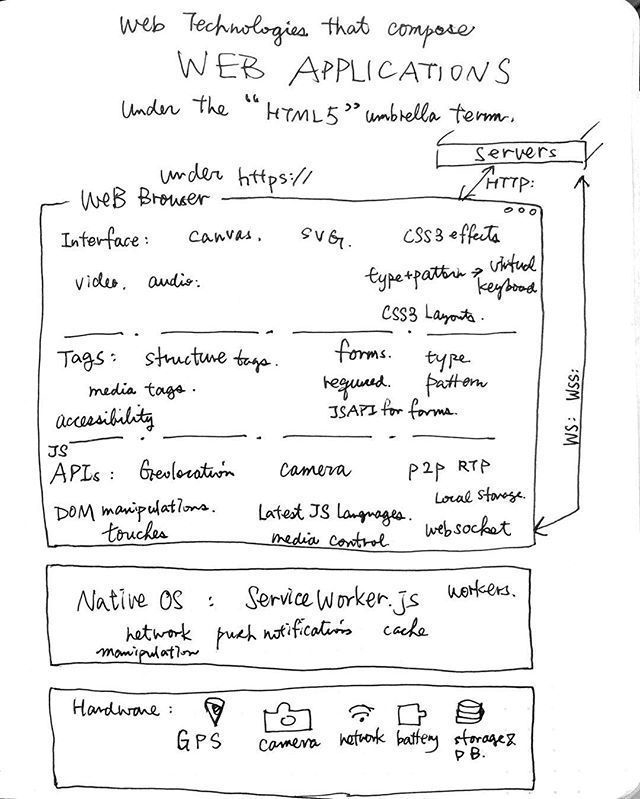 Web Technologies that compose
WEB APPLICATIONS
under the "HTML5" umbrella term.
servers
under https://
HTTP:
Web Browser
Interface: canvas. SVG. CSS3 effects
video. audio. type+pattern → virtual keyboard
CSS3 Layouts.
Tags: structure tags. forms. type
media tags. required. pattern
accessibility JSAPI for forms.
WS: WSS:
JS
APIs: Geolocation camera P2P RTP
Local Storage.
DOM manipulations. Latest JS Languages.
touches media control websocket
Native OS: ServiceWorker.js workers.
network push notifications cache
manipulation
Hardware:
GPS camera network battery storage &
DB.